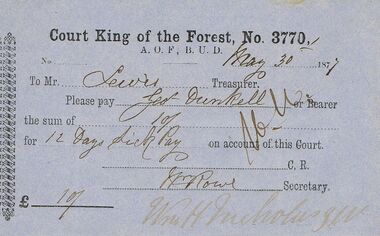 Court King of the Forest, No. 3770,
A. O. F., B. U. D.
No May 30 187
To Mr. Lewis Treasurer.
Please pay Geo Dunkell or Bearer
the sum of 10/
for 12 Days Sick Pay on account of this Court.
C. R.
W Rowe Secretary.
£ 10/
Nicholas